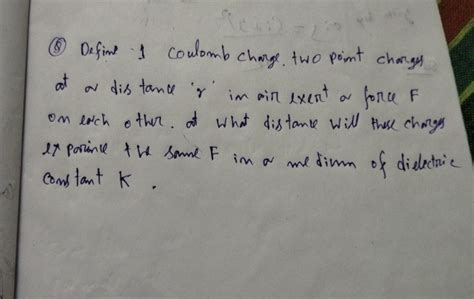 Q Define 1 Coulomb charge. two point charges
at a distance 'r' in air exert a force F
on each other. at what distance will these charges
experince the same F in a medium of dielectric
constant K.